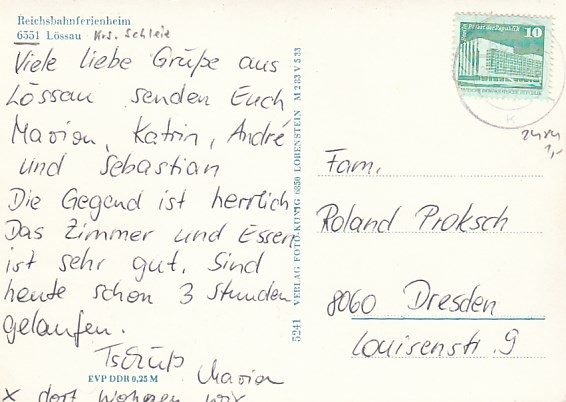 Reichsbahnferienheim
6551 Lössau Krs. Schleiz
Viele liebe Grüße aus
Lössau senden Euch
Marion, Katrin, André
und Sebastian
Die Gegend ist herrlich
Das Zimmer und Essen
ist sehr gut. Sind
heute schon 3 Stunden
gelaufen.
Tschüß
Marion
x dort wohnen wir
EVP DDR 0,25 M
5241 VERLAG FOTO-KÖNIG 6850 LOBENSTEIN M 283 V 5 33
10
Palast der Republik
DEUTSCHE DEMOKRATISCHE REPUBLIK
1,-
Fam.
Roland Proksch
8060 Dresden
Louisenstr. 9